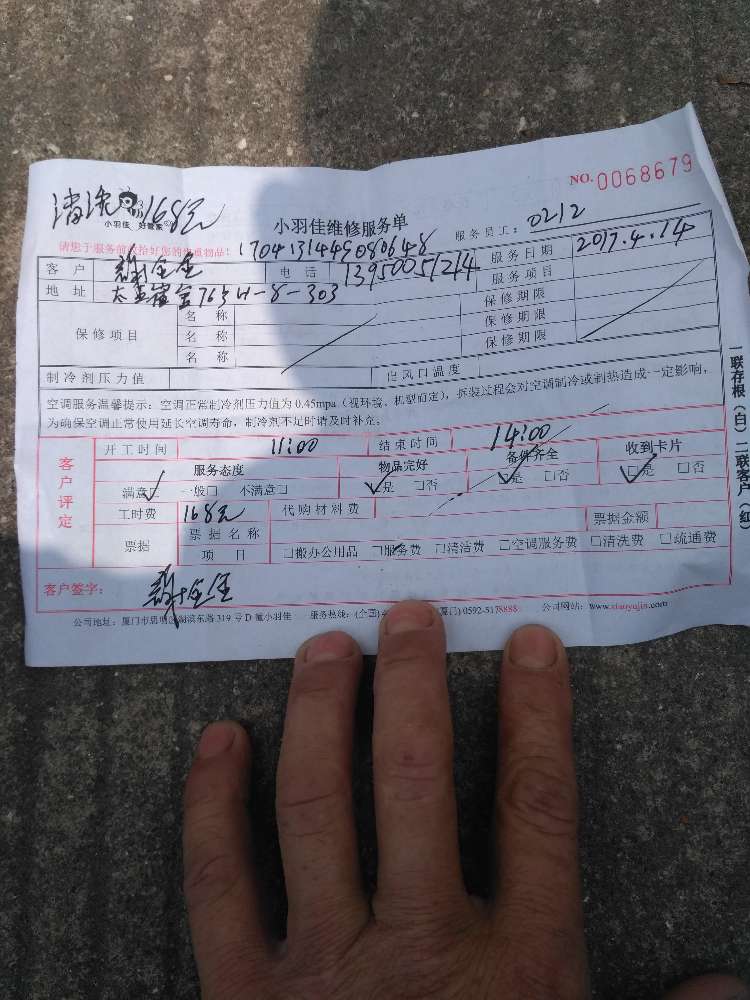 NO.0068679
清洗 168元
小羽佳 好管家
小羽佳维修服务单
服务员工：0212
请您于服务前收拾好您的贵重物品！1704131449080648
客户 电话 13950051214 服务日期 2017.4.14
地址 763 H-8-303 服务项目
保修项目 名称 保修期限
名称 保修期限
名称 保修期限
制冷剂压力值 出风口温度
空调服务温馨提示：空调正常制冷剂压力值为0.45mpa（视环境、机型而定），拆装过程会对空调制冷或制热造成一定影响，
为确保空调正常使用延长空调寿命，制冷剂不足时请及时补充。
客户评定
开工时间 11:00 结束时间 14:00
服务态度 物品完好 备件齐全 收到卡片
满意□ 一般□ 不满意□ □是 □否 □是 □否 □是 □否
工时费 168元 代购材料费
票据 票据名称 票据金额
项目 □搬办公用品 □服务费 □清洁费 □空调服务费 □清洗费 □疏通费
客户签字：
公司地址：厦门市思明区湖滨东路319号D幢小羽佳 服务热线：(全国) (厦门) 0592-5178888 公司网站：www.xiaoyujia.com
一联存根（白）二联客户（红）